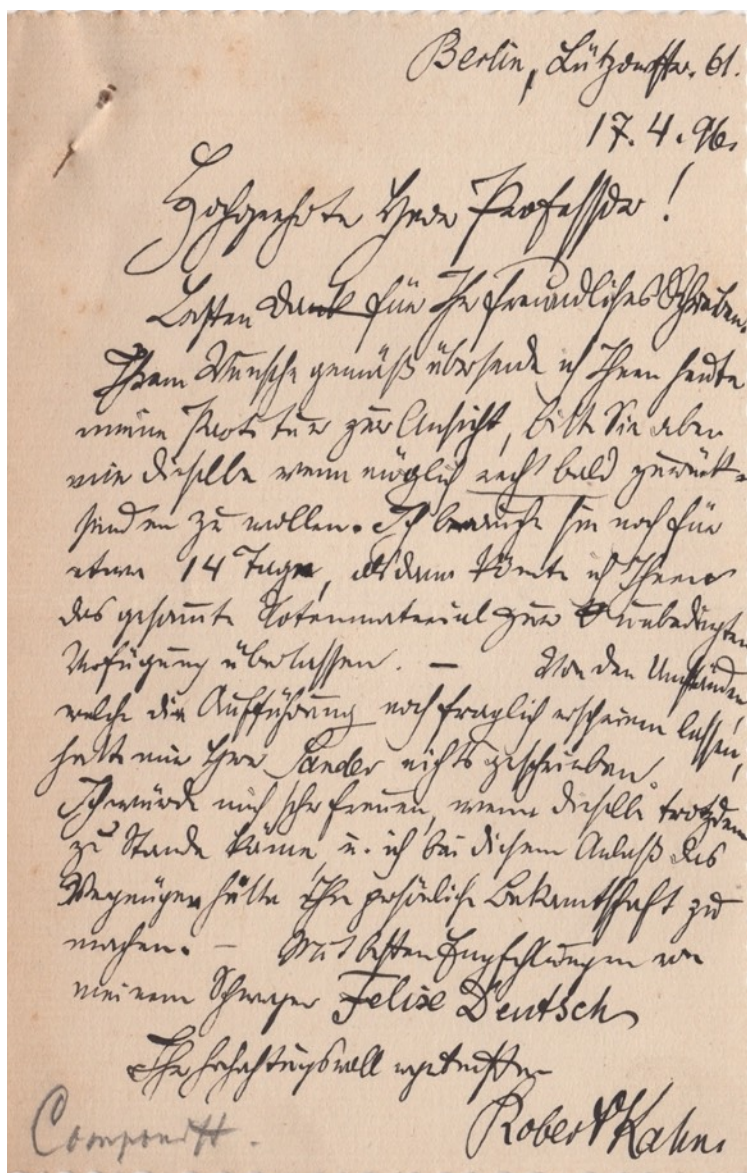 Berlin, Lützowstr. 61.
17. 4. 96.
Hochgeehrter Herr Professor!
Besten Dank für Ihr freundliches Schreiben.
Ihrem Wunsche gemäß übersende ich Ihnen heute
meine Partitur zur Ansicht, bitte Sie aber
mir dieselbe wenn möglich recht bald zurück-
senden zu wollen. Ich brauche sie noch für
etwa 14 Tage, alsdann könnte ich Ihnen
das gesammte Notenmaterial zur unbedingten
Verfügung überlassen. — Von den Umständen,
welche die Aufführung noch fraglich erscheinen lassen,
hatte mir Herr Sander nichts geschrieben.
Ich würde mich sehr freuen, wenn dieselbe trotzdem
zu Stande käme, u. ich bei diesem Anlaß das
Vergnügen hätte Ihre persönliche Bekanntschaft zu
machen. — Mit besten Empfehlungen von
meinem Schwager Felix Deutsch
Ihr hochachtungsvoll ergebenster
Robert Kahn
Componist.